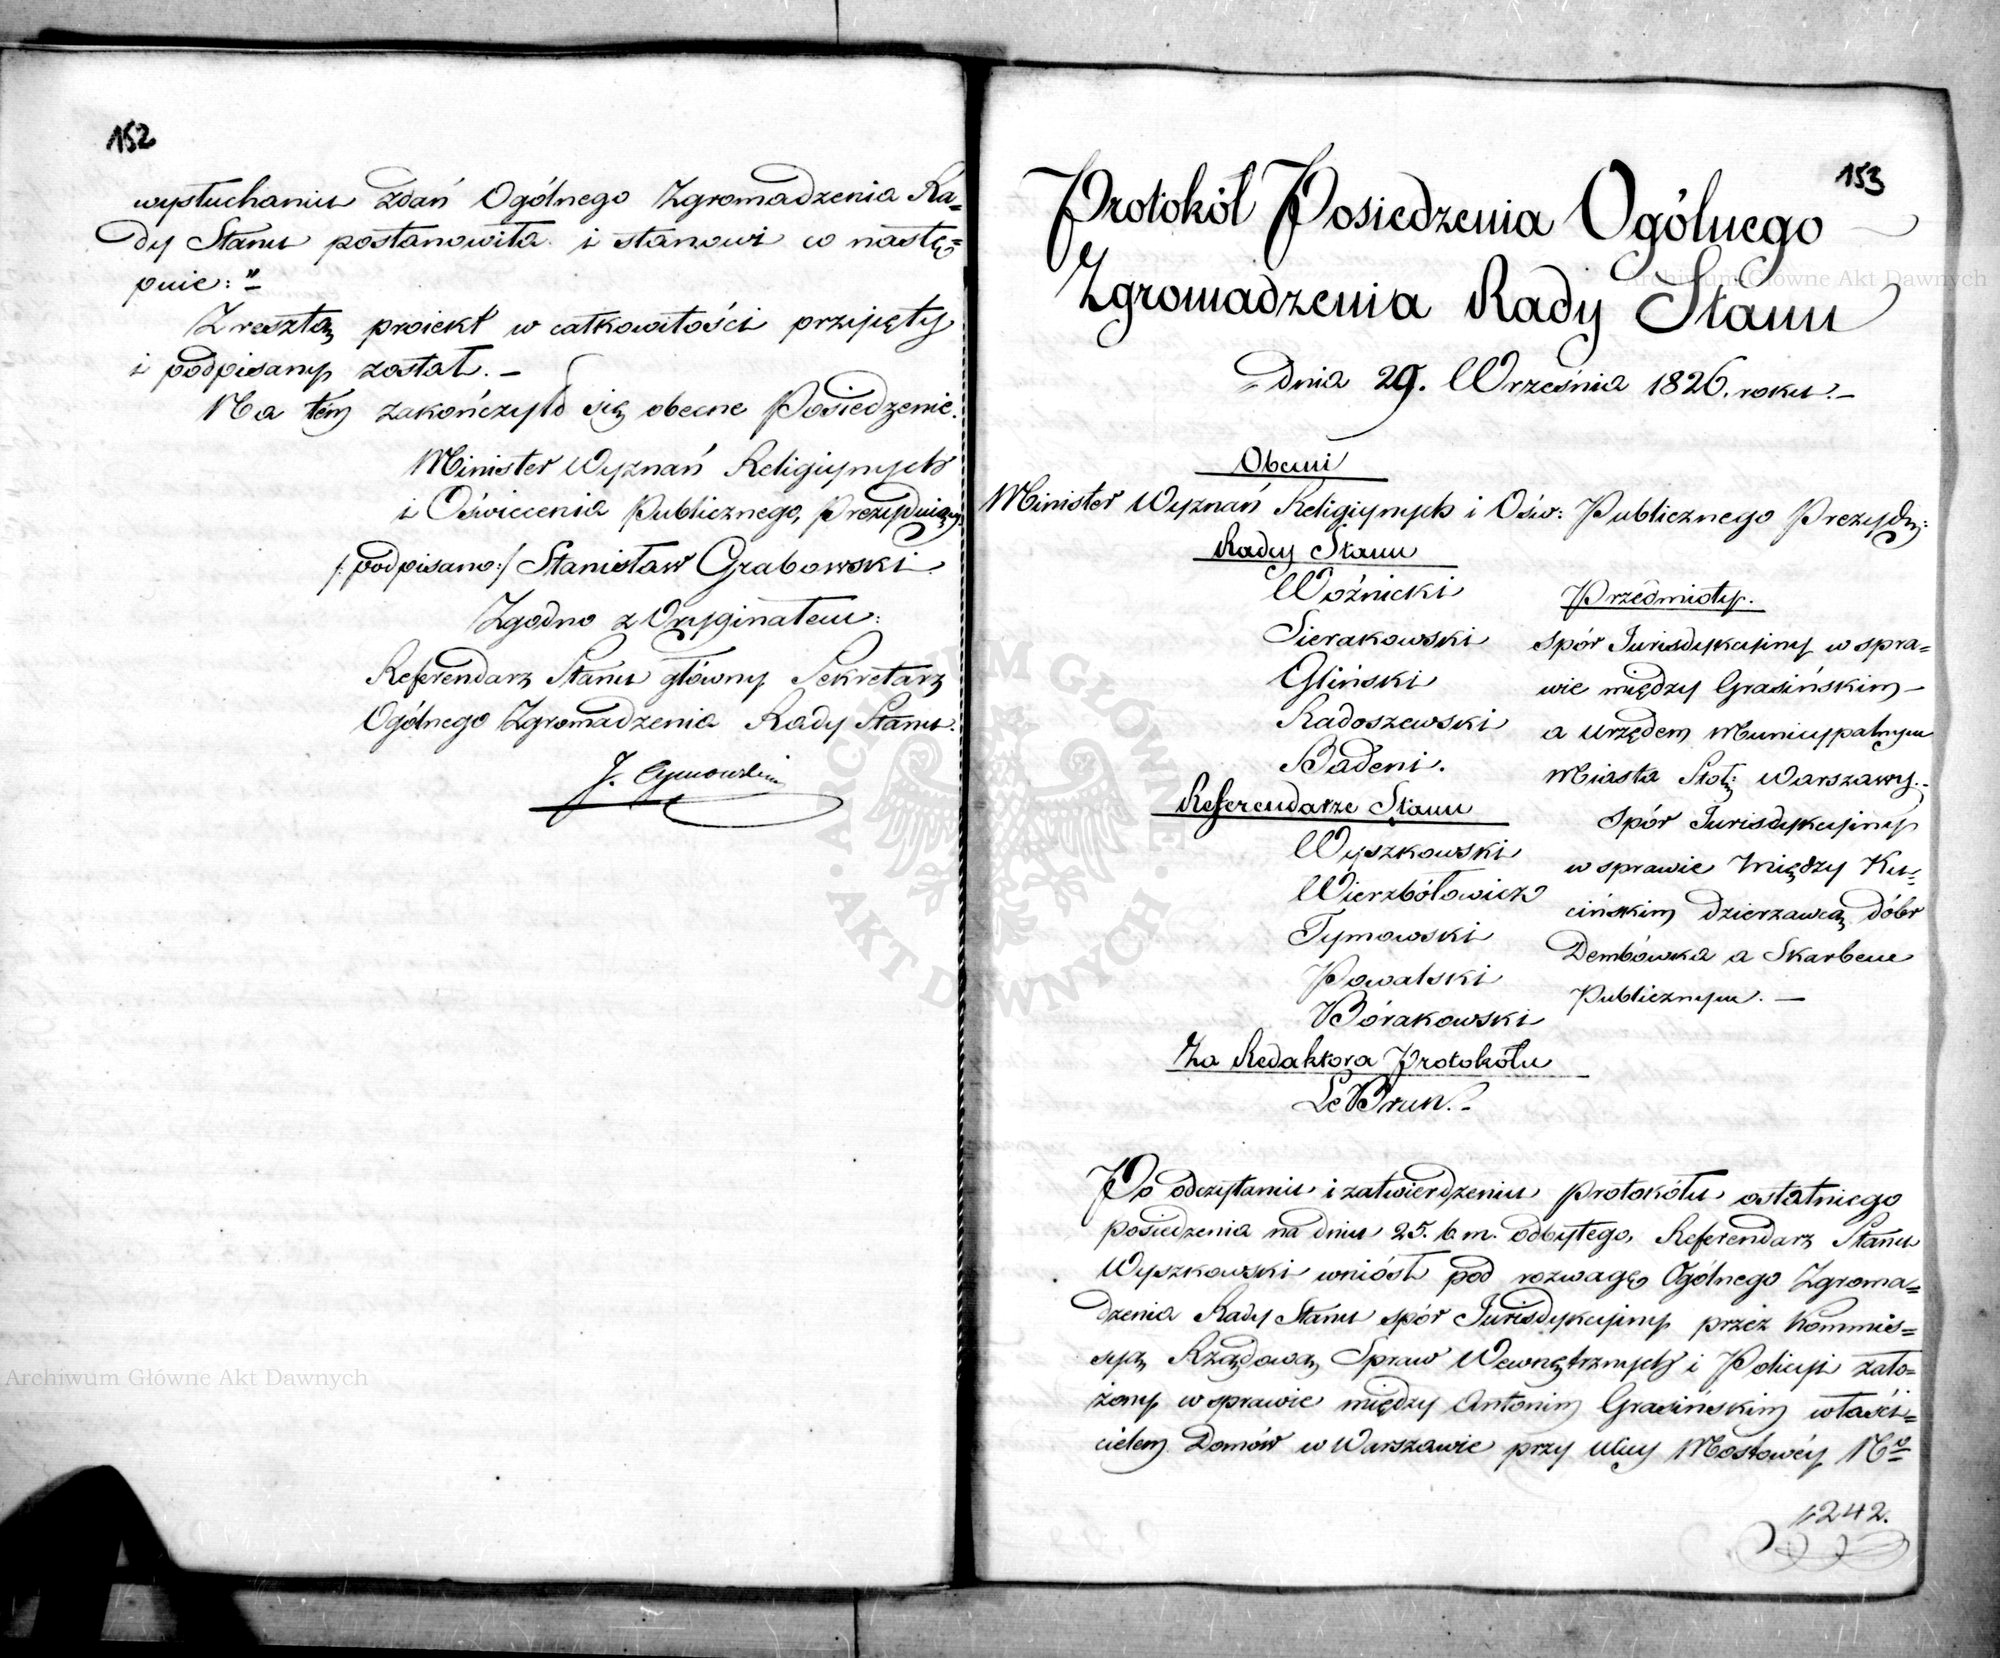 152
wysłuchaniu zdań Ogólnego Zgromadzenia Ra=
dy Stanu postanowiła i stanowi co nastę=
puie:"
Zresztą proiekt w całkowitości przyięty
i podpisany został. –
Na tém zakończyło się obecne Posiedzenie.
Minister Wyznań Religiynych
i Oświecenia Publicznego, Prezyduiący
/:podpisano:/ Stanisław Grabowski.
Zgodno z Oryginałem:
Referendarz Stanu główny Sekretarz
Ogólnego Zgromadzenia Rady Stanu.
J. Tymowski
153
Protokół Posiedzenia Ogólnego
Zgromadzenia Rady Stanu
dnia 29. Września 1826. roku. –
Obecni
Minister Wyznań Religiynych i Ośw: Publicznego Prezyduj:
Radcy Stanu
Woźnicki
Sierakowski
Gliński
Radoszewski
Badeni.
Referendarze Stanu
Wyszkowski
Wierzbółowicz
Tymowski
Powalski
Bórakowski
Za Redaktora Protokółu
Le Brun. –
Przedmioty.
Spór Jurisdykcyiny w spra=
wie między Grasińskim –
a Urzędem Municypalnym
Miasta Stoł: Warszawy. –
Spór Jurisdykcyiny
w sprawie między Ku=
cińskim dzierzawcą dóbr
Dembówka a Skarbem
Publicznym. –
Po odczytaniu i zatwierdzeniu protokółu ostatniego
posiedzenia na dniu 25. b. m. odbytego, Referendarz Stanu
Wyszkowski wniósł pod rozwagę Ogólnego Zgroma=
dzenia Rady Stanu spór Jurisdykcyiny przez Kommis=
syą Rządową Spraw Wewnętrznych i Policyi zało=
żony w sprawie między Antonim Grasińskim właści=
cielem Domów w Warszawie przy ulicy Mostowéy No
1242.
Archiwum Główne Akt Dawnych
Archiwum Główne Akt Dawnych
ARCHIWUM GŁÓWNE · AKT DAWNYCH ·